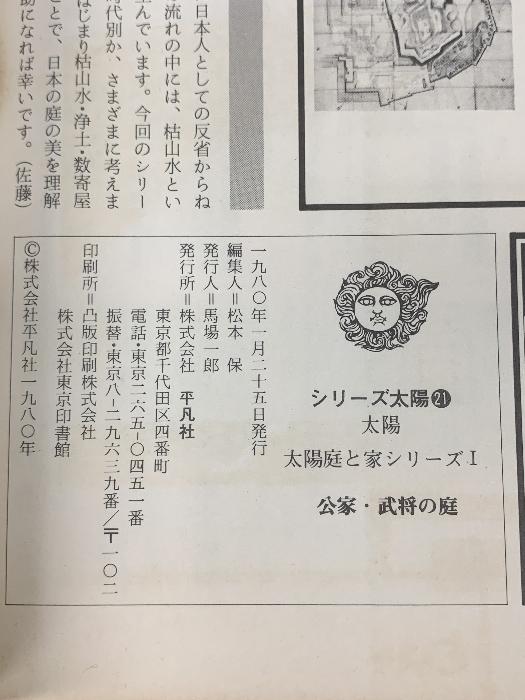 日本人としての反省からね
流れの中には、枯山水とい
んでいます。今回のシリー
時代別か、さまざまに考えま
はじまり枯山水・浄土・数寄屋
とで、日本の庭の美を理解
助になれば幸いです。（佐藤）
シリーズ太陽㉑
太陽
太陽庭と家シリーズⅠ
公家・武将の庭
一九八〇年一月二十五日発行
編集人＝松本　保
発行人＝馬場一郎
発行所＝株式会社　平凡社
東京都千代田区四番町
電話・東京二六五－〇四五一番
振替・東京八－二九六三九番／〒一〇二
印刷所＝凸版印刷株式会社
株式会社東京印書館
©株式会社平凡社一九八〇年